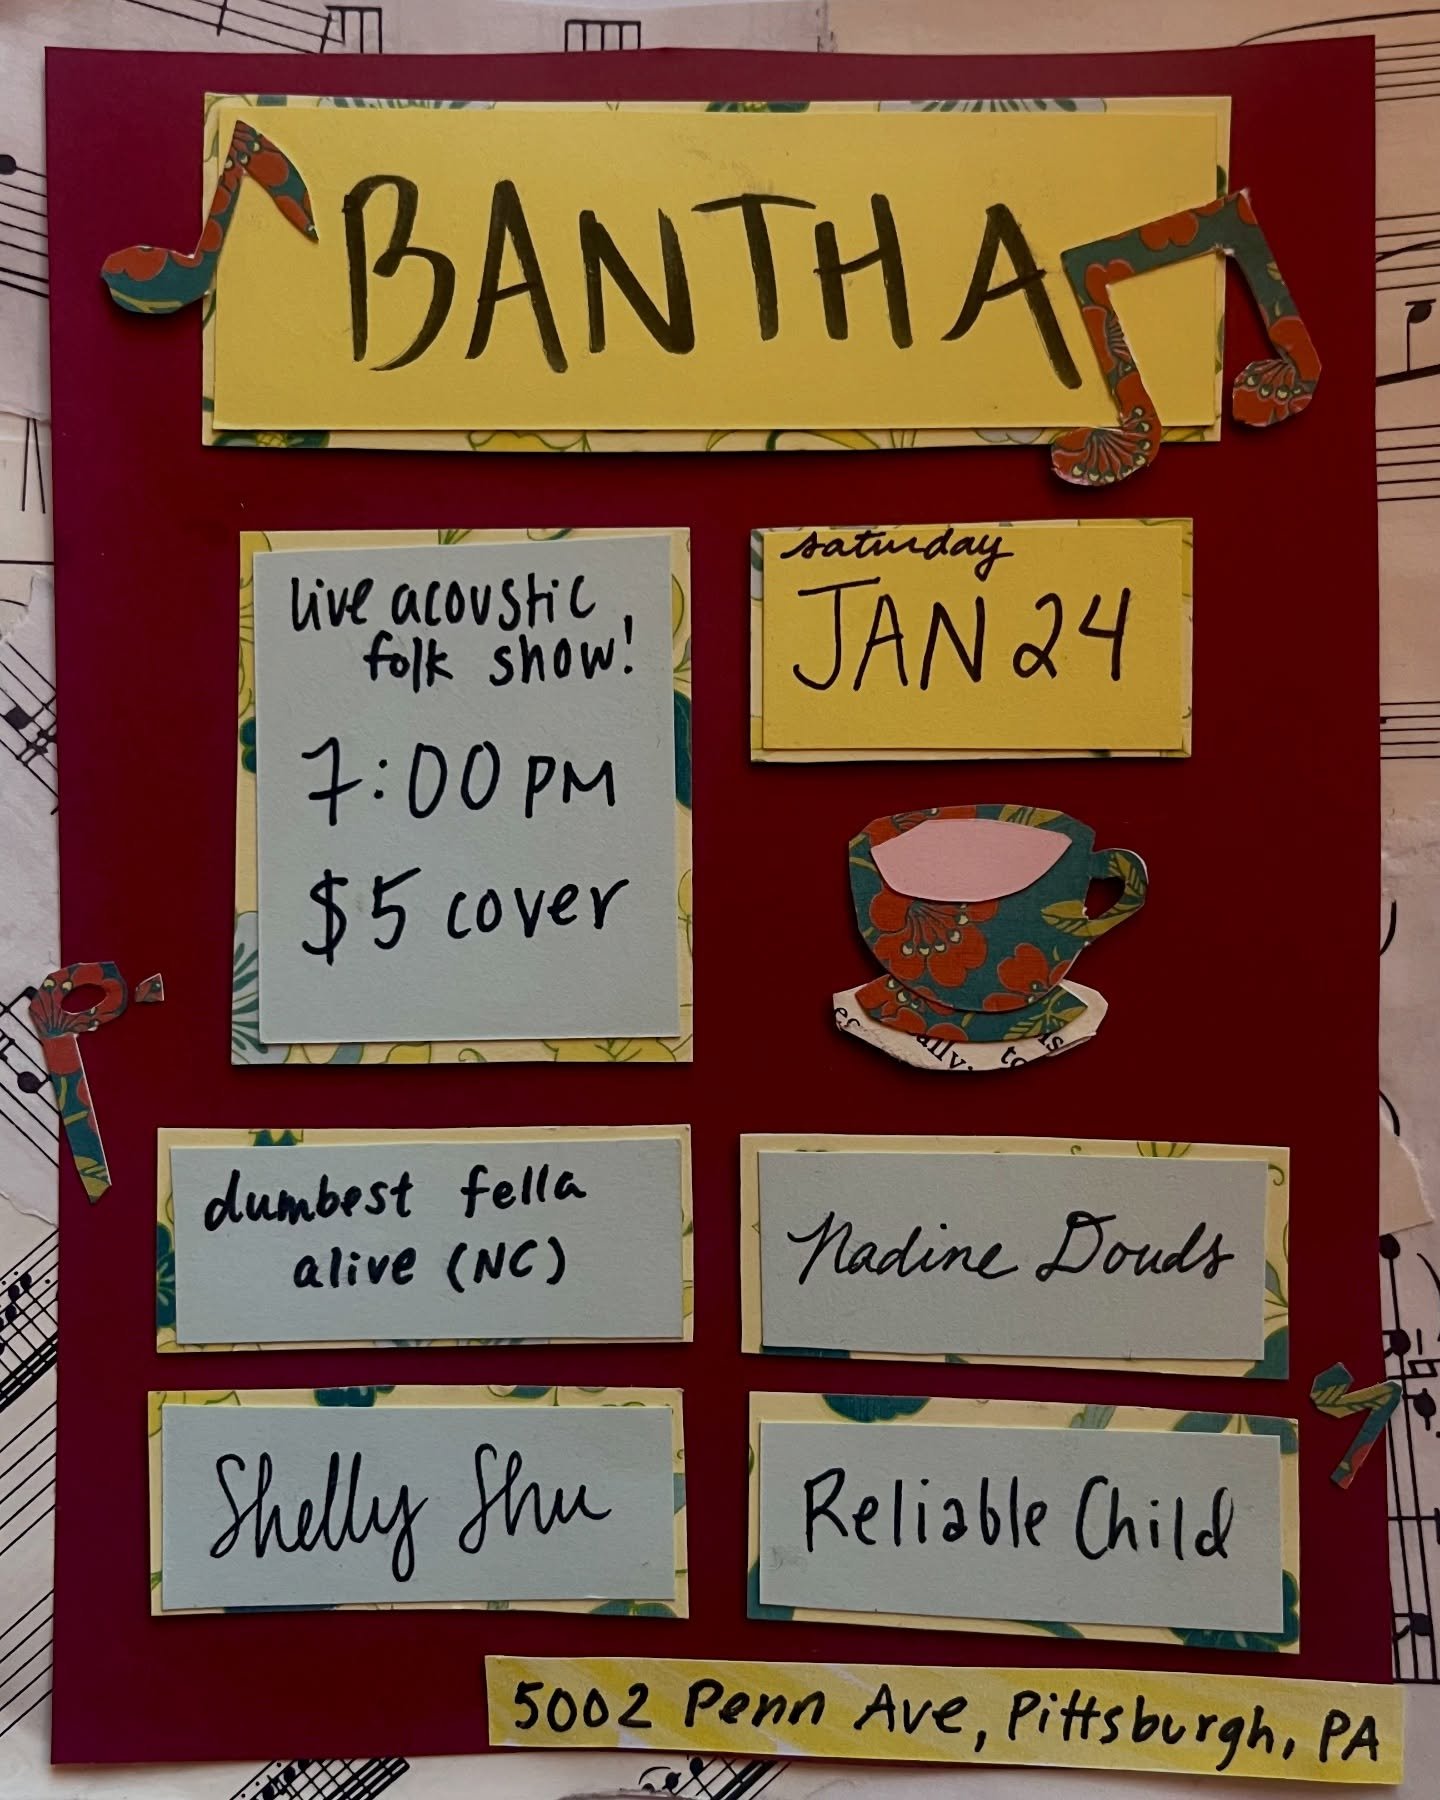 BANTHA
live acoustic
folk show!
7:00 PM
$5 cover
saturday
JAN 24
dumbest fella
alive (NC)
Nadine Douds
Shelly Shu
Reliable Child
5002 Penn Ave, Pittsburgh, PA